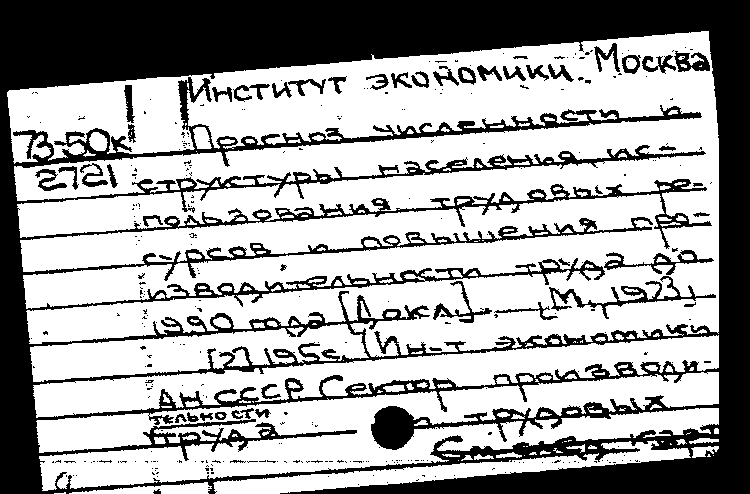 Институт экономики. Москва
73-50к Прогноз численности и
2721 структуры населения, ис-
пользования трудовых ре-
сурсов и повышения про-
изводительности труда до
1990 года [Докл.]. [М., 1973],
[2], 195с. (Ин-т экономики
АН СССР Сектор производи-
тельности
труда и трудовых
См след карт